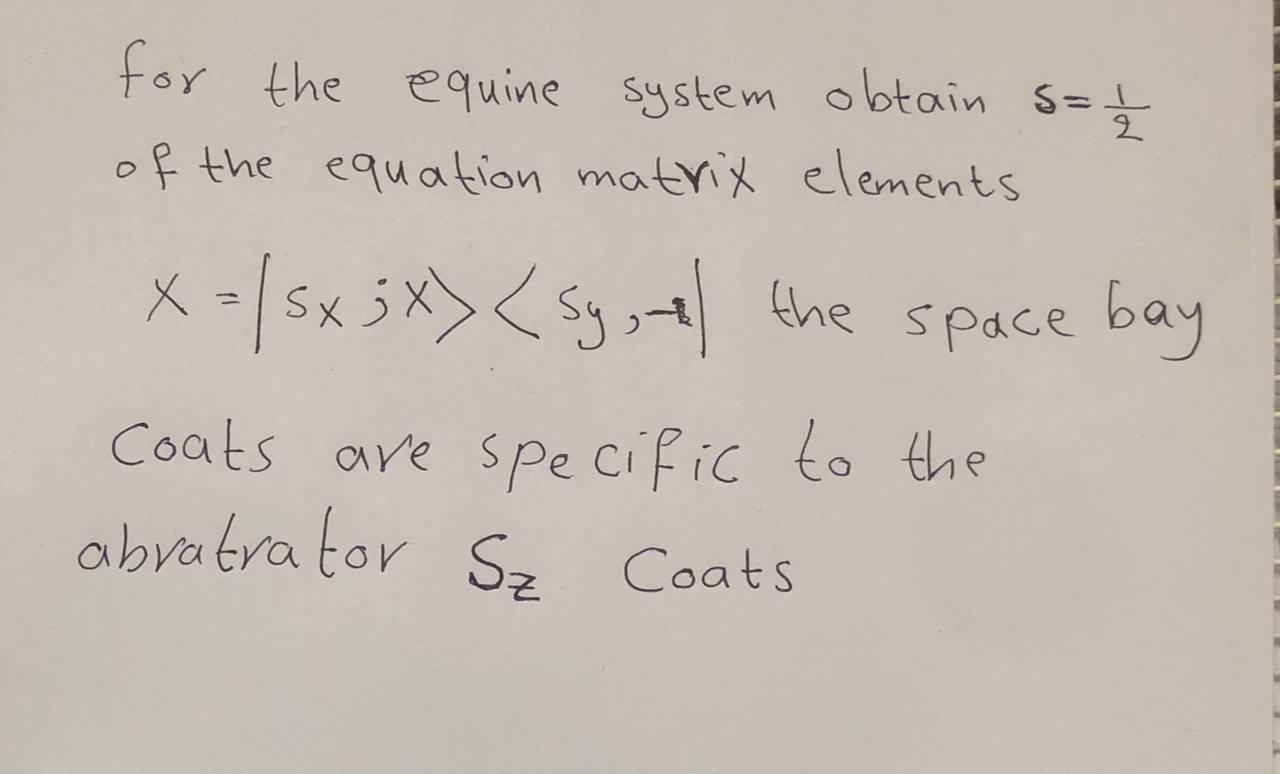 for the equine system obtain s=1/2
of the equation matrix elements
X = |Sx ; X> < Sy , -1| the space bay
Coats are specific to the
abratrator Sz Coats